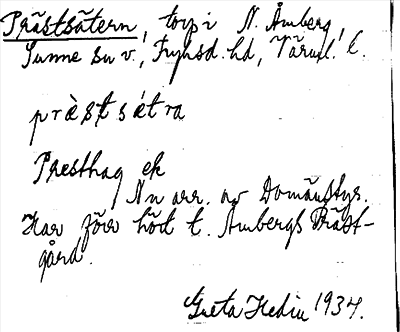 Prästsätern, torp i N. Åmberg,
Sunne sn v., Fryksd. hd, Värml. l.
præ̀stsǽtra
Presthag ek
Nu arr. av Domänstyr.
Har förr hört t. Ambergs Präst-
gård.
Greta Hedin 1934.